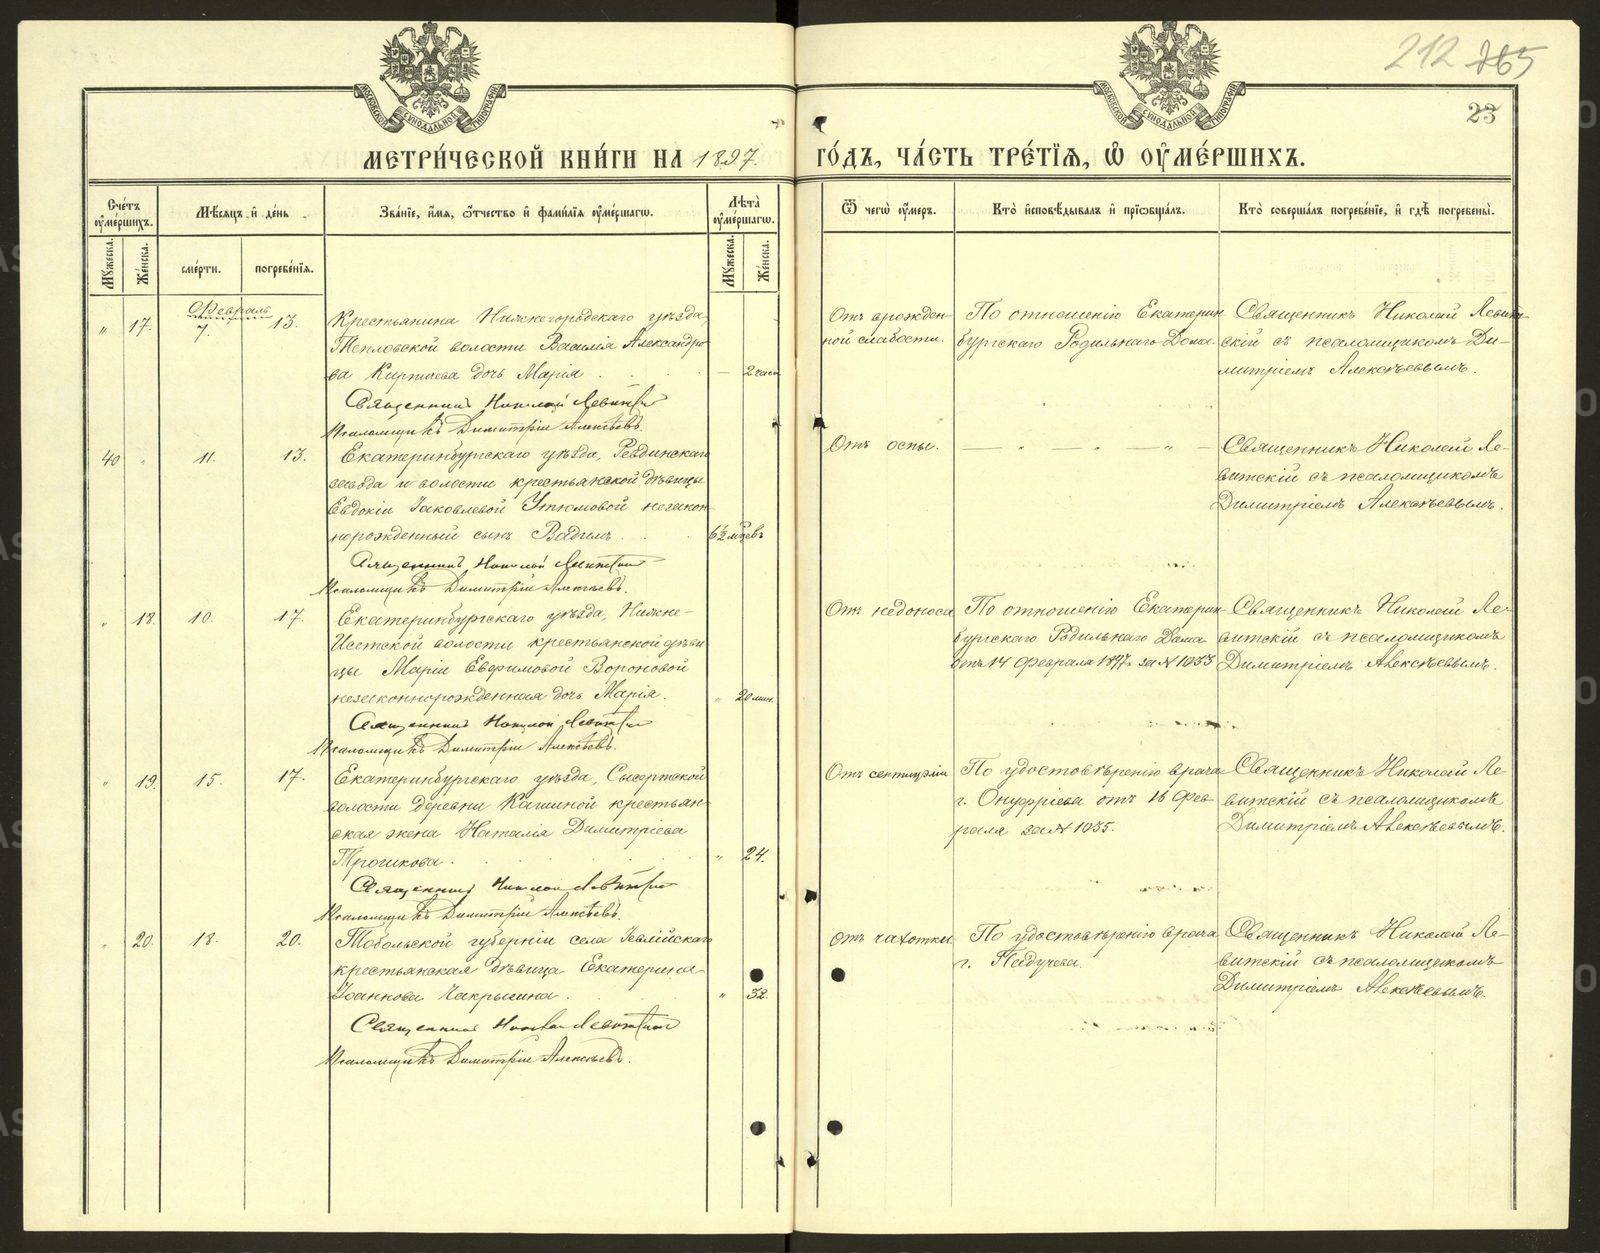 212 265
23
МОСКОВСКОЙ СѴНОДАЛЬНОЙ ТИПОГРАФІИ
МОСКОВСКОЙ СѴНОДАЛЬНОЙ ТИПОГРАФІИ
МЕТРИ́ЧЕСКОЙ КНИ́ГИ НА 1897.
ГО́ДЪ, ЧА́СТЬ ТРЕ́ТІѦ, Ѽ ОУ҆МЕ́РШИХЪ.
Сче́тъ оу҆ме́ршихъ.
Мѣсѧцъ и҆ де́нь
Зва́нїе, и҆́мѧ, ѻ҆́тчество и҆ фами́лїѧ оу҆ме́ршагѡ.
Лѣта̀ оу҆ме́ршагѡ.
Ѿ чегѡ̀ оу҆́меръ.
Кто̀ и҆сповѣ́дывалъ и҆ прїѡбща́лъ.
Кто̀ соверша́лъ погребе́нїе, и҆ гдѣ̀ погребены̀.
Мꙋ́жеска.
Же́нска.
сме́рти.
погребе́нїѧ.
Мꙋ́жеска.
Же́нска.
Февраль
" 17. 7. 13. Крестьянина Нижнегородскаго уѣзда,
Тепловской волости Василія Александро
ва дочь Марія . — 2 часа
Священникъ Николай Левитскій
Псаломщикъ Димитрій Алексѣевъ.
Отъ врожден-
ной слабости.
По отношенію Екатерин
бургскаго Родильнаго Дома.
Священникъ Николай Левит
скій съ псаломщикомъ Ди-
митріемъ Алексѣевымъ.
40 " 11. 13. Екатеринбургскаго уѣзда, Ревдинскаго
завода и волости крестьянской дѣвицы
Евдокіи Іаковлевой Утюмовой незакон-
норожденный сынъ Вадимъ . 6½ мѣсяцевъ
Священникъ Николай Левитскій
Псаломщикъ Димитрій Алексѣевъ.
Отъ оспы.
— " — " — " —
Священникъ Николай Ле-
витскій съ псаломщикомъ
Димитріемъ Алексѣевымъ.
" 18. 10. 17. Екатеринбургскаго уѣзда, Нижне-
Исетской волости крестьянской дѣви
цы Маріи Евфимовой Вороновой
незаконнорожденная дочь Марія. " 20 мин.
Священникъ Николай Левитскій
Псаломщикъ Димитрій Алексѣевъ.
Отъ недоноса
По отношенію Екатерин
бургскаго Родильнаго Дома
отъ 14 февраля 1897 г. за № 1033
Священникъ Николай Ле-
витскій съ псаломщикомъ
Димитріемъ Алексѣевымъ.
" 19. 15. 17. Екатеринбургскаго уѣзда, Сысертской
волости деревни Кашиной крестьян-
ская жена Наталія Димитріева
Трошкова . " 24.
Священникъ Николай Левитскій
Псаломщикъ Димитрій Алексѣевъ.
Отъ септицэміи
По удостовѣренію врача
г. Онуфріева отъ 16 фев
раля за № 1035.
Священникъ Николай Ле-
витскій съ псаломщикомъ
Димитріемъ Алексѣевымъ.
" 20. 18. 20. Тобольской губерніи села Іевлійскаго
крестьянская дѣвица Екатерина
Іоаннова Чакрыгина . " 32.
Священникъ Николай Левитскій
Псаломщикъ Димитрій Алексѣевъ.
Отъ чахотки.
По удостовѣренію врача
г. Падучева.
Священникъ Николай Ле-
витскій съ псаломщикомъ
Димитріемъ Алексѣевымъ.